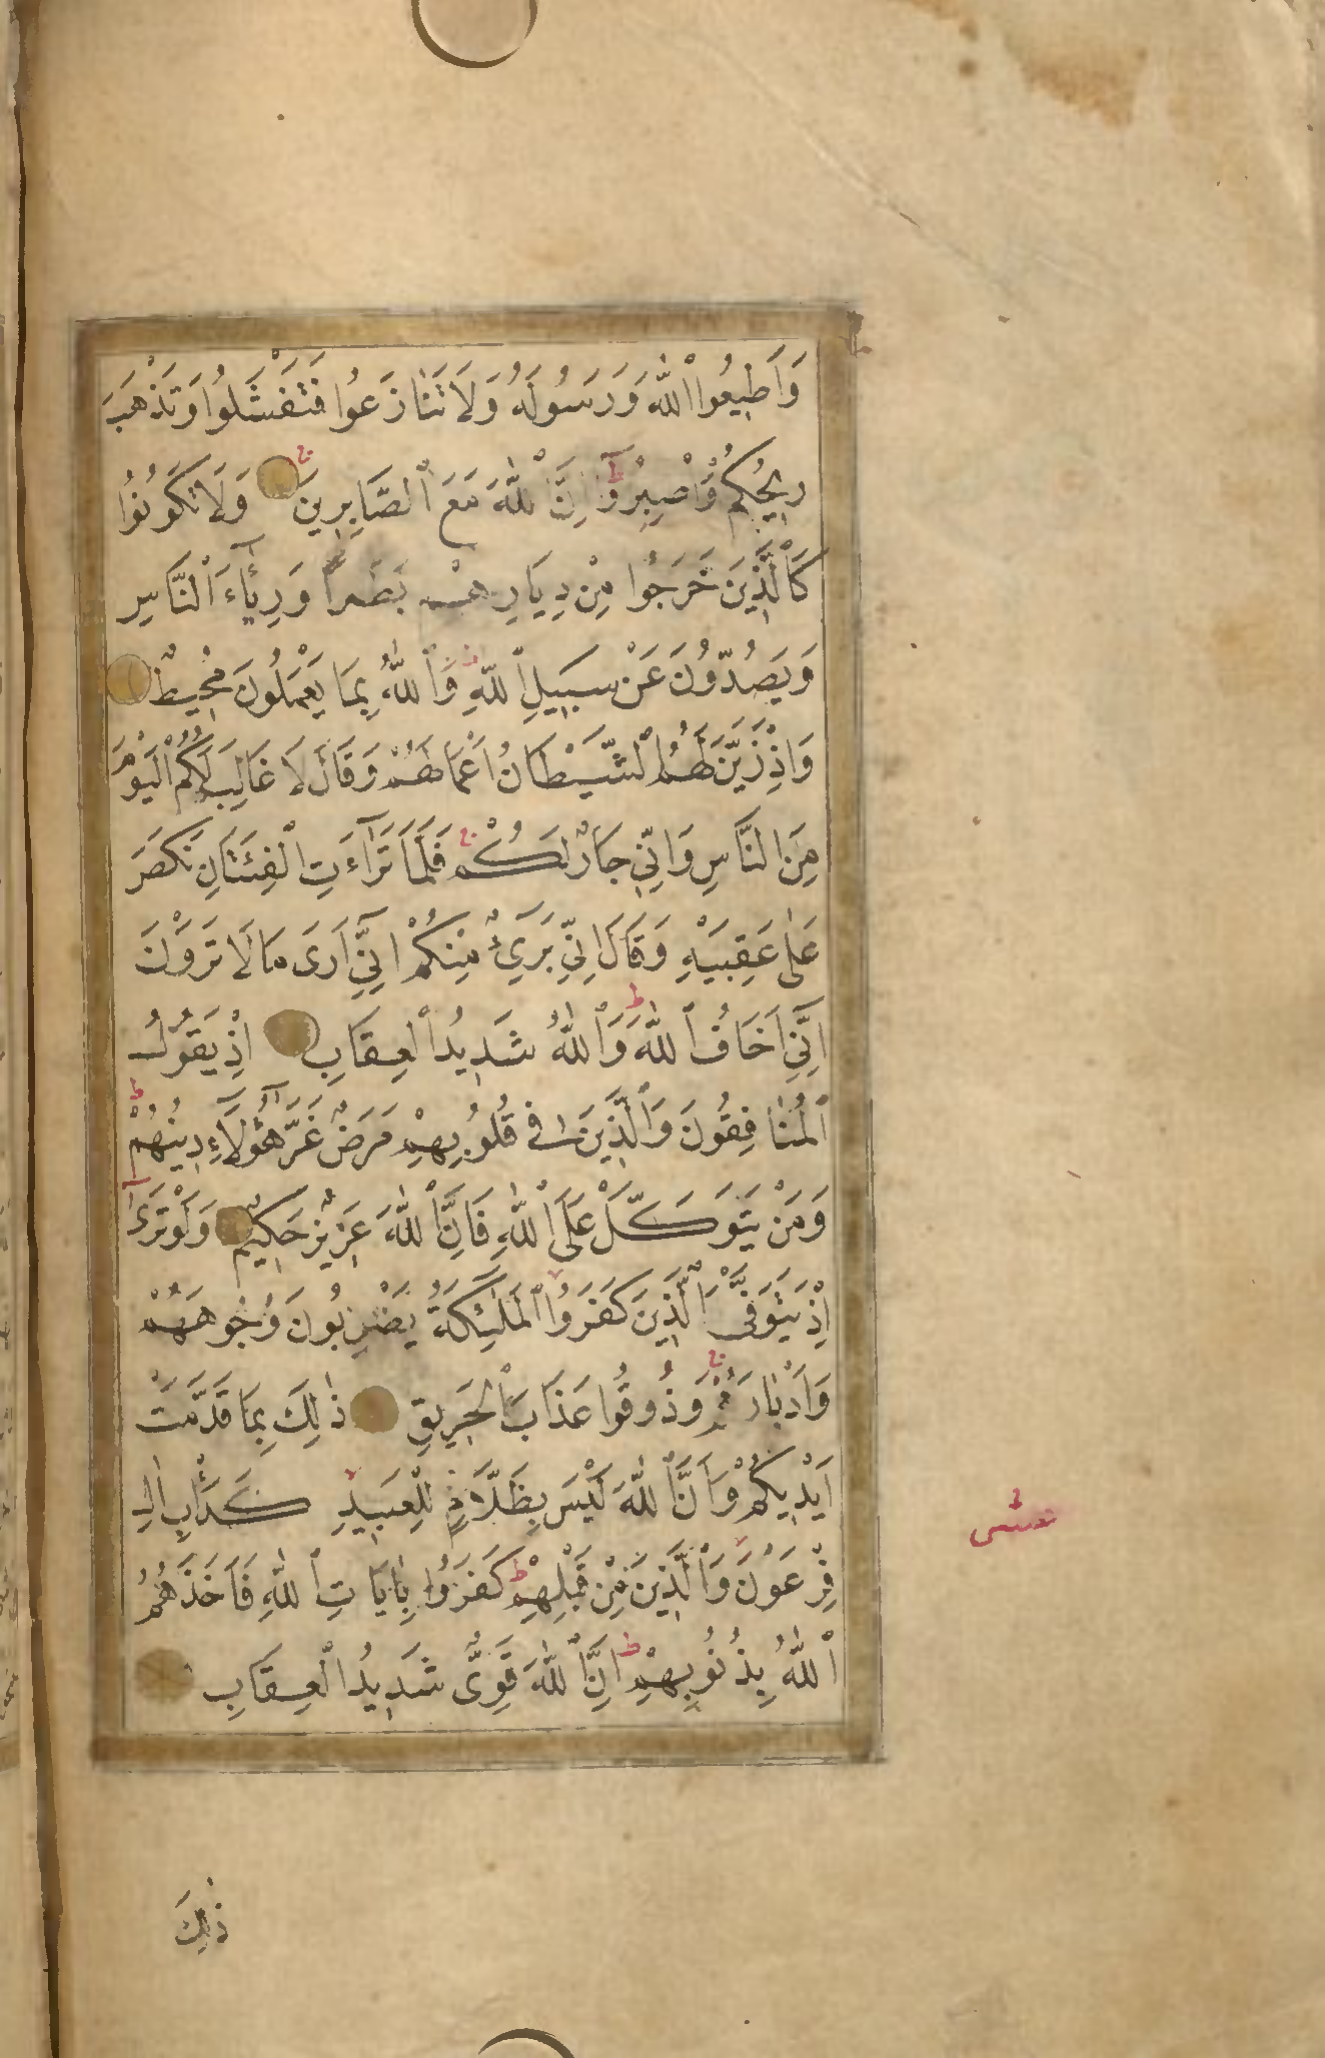 وَاَطِيعُوا اللّٰهَ وَرَسُولَهُ وَلَا تَنَازَعُوا فَتَفْشَلُوا وَتَذْهَبَ
رِيحُكُمْ وَاصْبِرُوا اِنَّ اللّٰهَ مَعَ الصَّابِرِينَ وَلَا تَكُونُوا
كَالَّذِينَ خَرَجُوا مِنْ دِيَارِهِمْ بَطَرًا وَرِئَاءَ النَّاسِ
وَيَصُدُّونَ عَنْ سَبِيلِ اللّٰهِ وَاللّٰهُ بِمَا يَعْمَلُونَ مُحِيطٌ
وَاِذْ زَيَّنَ لَهُمُ الشَّيْطَانُ اَعْمَالَهُمْ وَقَالَ لَا غَالِبَ لَكُمُ الْيَوْمَ
مِنَ النَّاسِ وَاِنِّي جَارٌ لَكُمْ فَلَمَّا تَرَاءَتِ الْفِئَتَانِ نَكَصَ
عَلٰى عَقِبَيْهِ وَقَالَ اِنِّي بَرِيءٌ مِنْكُمْ اِنِّي اَرَى مَا لَا تَرَوْنَ
اِنِّي اَخَافُ اللّٰهَ وَاللّٰهُ شَدِيدُ الْعِقَابِ اِذْ يَقُولُ
الْمُنَافِقُونَ وَالَّذِينَ فِي قُلُوبِهِمْ مَرَضٌ غَرَّ هٰؤُلَاءِ دِينُهُمْ
وَمَنْ يَتَوَكَّلْ عَلَى اللّٰهِ فَاِنَّ اللّٰهَ عَزِيزٌ حَكِيمٌ وَلَوْ تَرَى
اِذْ يَتَوَفَّى الَّذِينَ كَفَرُوا الْمَلٰئِكَةُ يَضْرِبُونَ وُجُوهَهُمْ
وَاَدْبَارَهُمْ وَذُوقُوا عَذَابَ الْحَرِيقِ ذٰلِكَ بِمَا قَدَّمَتْ
اَيْدِيكُمْ وَاَنَّ اللّٰهَ لَيْسَ بِظَلَّامٍ لِلْعَبِيدِ كَدَأْبِ اٰلِ
فِرْعَوْنَ وَالَّذِينَ مِنْ قَبْلِهِمْ كَفَرُوا بِاٰيَاتِ اللّٰهِ فَاَخَذَهُمُ
اللّٰهُ بِذُنُوبِهِمْ اِنَّ اللّٰهَ قَوِيٌّ شَدِيدُ الْعِقَابِ
ذٰلِكَ